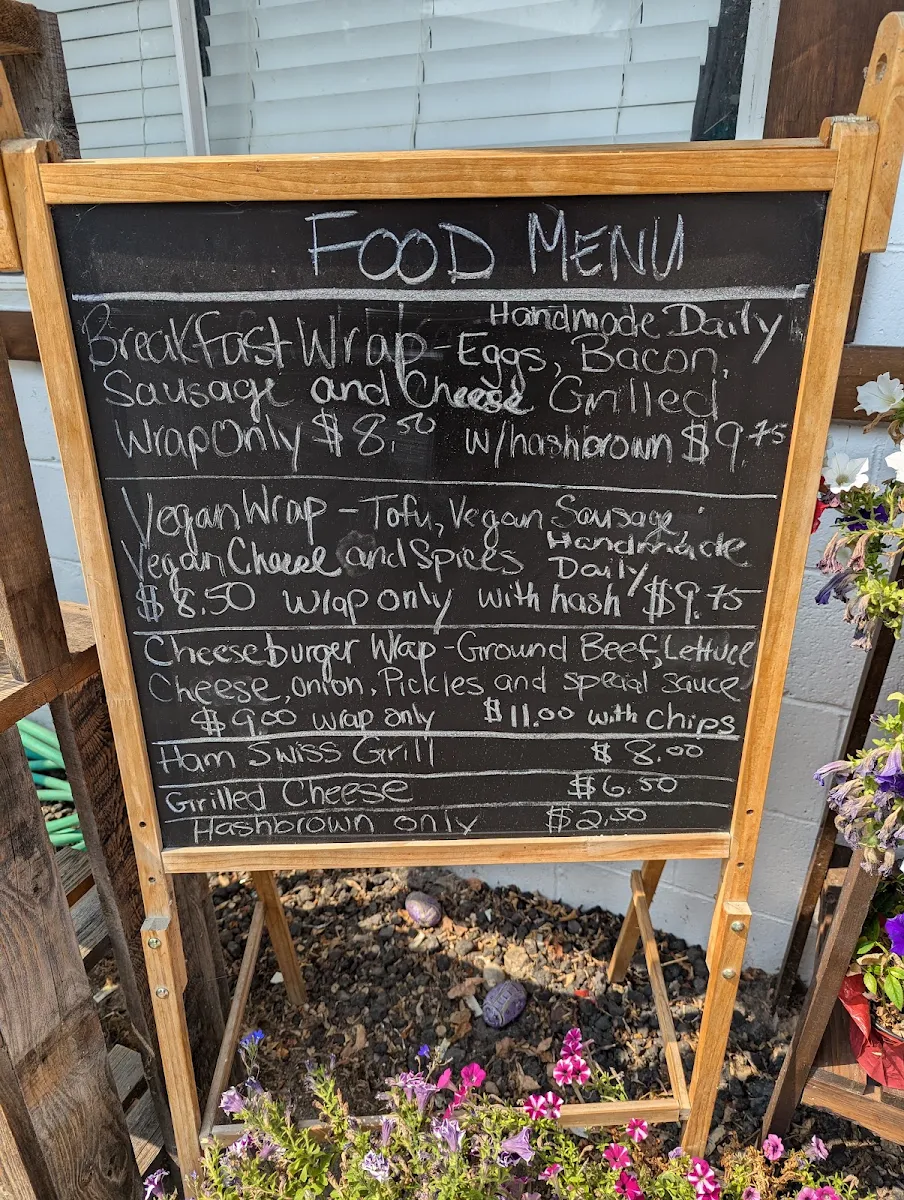 FOOD MENU
Handmade Daily
Breakfast Wrap - Eggs, Bacon,
Sausage and Cheese Grilled
Wrap Only $8.50 w/hashbrown $9.75
Vegan Wrap - Tofu, Vegan Sausage
Vegan Cheese and Spices Handmade Daily
$8.50 wrap only with hash $9.75
Cheeseburger Wrap - Ground Beef, Lettuce
Cheese, onion, Pickles and special sauce
$9.00 wrap only $11.00 with chips
Ham Swiss Grill $8.00
Grilled Cheese $6.50
Hashbrown only $2.50